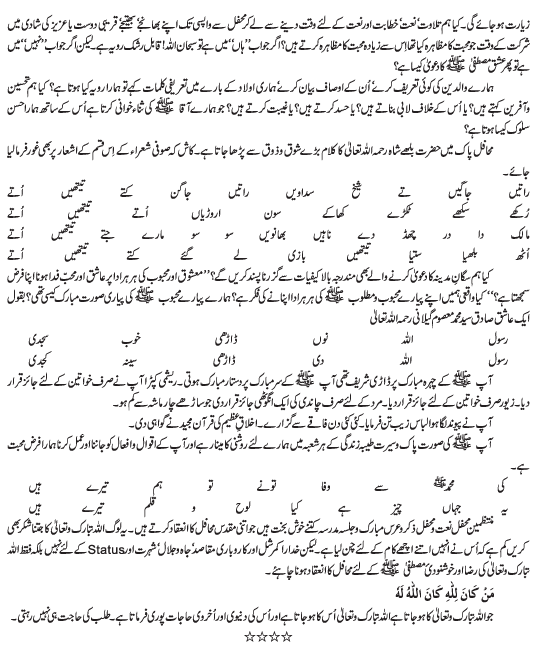 زیارت ہو جائے گی۔ کیا ہم تلاوت، نعت، خطابت اور نعت کے لئے وقت دینے سے لے کر محفل سے واپسی تک اپنے بھانجے، بھتیجے، قریبی دوست یا عزیز کی شادی میں
شرکت کے وقت جو محبت کا مظاہرہ کیا تھا اِس سے زیادہ محبت کا مظاہرہ کرتے ہیں؟ اگر جواب ”ہاں“ میں ہے تو سبحان اللہ! قابل رشک رویہ ہے۔ لیکن اگر جواب ”نہیں“ میں
ہے تو پھر عشق مصطفیٰ ﷺ کا دعویٰ کیسا ہے؟
ہمارے والدین کی کوئی تعریف کرئے، اُن کے اوصاف بیان کرئے، ہماری اولاد کے بارے میں تعریفی کلمات کہے تو ہمارا رویہ کیا ہوتا ہے؟ کیا ہم تحسین
و آفرین کہتے ہیں؟ یا اُس کے خلاف لابی بناتے ہیں؟ یا حسد کرتے ہیں؟ یا غیبت کرتے ہیں؟ جو ہمارے آقا ﷺ کی ثناء خوانی کرتا ہے اُس کے ساتھ ہمارا حسن
سلوک کیسا ہوتا ہے؟
محافل پاک میں حضرت بلھے شاہ رحمہ اللہ تعالیٰ کا کلام بڑے شوق و ذوق سے پڑھا جاتا ہے۔ کاش کہ صوفی شعراء کے اِس قسم کے اشعار پر بھی غور فرما لیا
جائے۔
راتیں جاگیں تے شیخ سداویں راتیں جاگن کتے تیتھیں اُتے
رُکھے سکھے ٹکڑے کھاکے سون اروڑیاں اُتے تیتھیں اُتے
مالک دا در چھڈ دے ناہیں بھانویں سو سو مارے جتے تیتھیں اُتے
اُٹھ بلھیا ستیا تیتھیں بازی لے گئے کتے تیتھیں اُتے
کیا ہم سگانِ مدینہ کا دعویٰ کرنے والے بھی مندرجہ بالا کیفیات سے گزرنا پسند کریں گے؟ ”معشوق اور محبوب کی ہر ہر ادا پر عاشق اور محب فدا ہونا اپنا فرض
سمجھتا ہے؟“ کیا واقعی ہمیں اپنے پیارے محبوب و مطلوب ﷺ کی ہر ہر ادا اپنانے کی فکر ہے؟ ہمارے پیارے محبوب ﷺ کی پیاری صورت مبارک کیسی تھی؟ بقول
ایک عاشق صادق سید محمد معصوم گیلانی رحمہ اللہ تعالیٰ
رسول اللہ نوں ڈاڑھی خوب سجدی
رسول اللہ دی ڈاڑھی سینہ کجدی
آپ ﷺ کے چہرہ مبارک پر ڈاڑی شریف تھی آپ ﷺ کے سر مبارک پر دستار مبارک ہوتی۔ ریشمی کپڑا آپ نے صرف خواتین کے لئے جائز قرار
دیا۔ زیور صرف خواتین کے لئے جائز قرار دیا۔ مرد کے لئے صرف چاندی کی ایک انگوٹھی جائز قرار دی جو ساڑھے چار ماشہ سے کم ہو۔
آپ نے پیوند لگا ہوا لباس زیب تن فرمایا۔ کئی کئی دن فاقے سے گزارے۔ اخلاقِ عظیم کی قرآن مجید نے گواہی دی۔
آپ ﷺ کی صورت پاک و سیرت طیبہ زندگی کے ہر شعبہ میں ہمارے لئے روشنی کا مینار ہے اور آپ کے اقوال و افعال کو جاننا اور عمل کرنا ہمارا فرض محبت
ہے۔
کی محمدﷺ سے وفا تونے تو ہم تیرے ہیں
یہ جہاں چیز ہے کیا لوح و قلم تیرے ہیں
منتظمین محفل نعت و محفل ذکر و عرس مبارک و جلسہ مدرسہ کتنے خوش بخت ہیں جو اتنی مقدس محافل کا انعقاد کرتے ہیں۔ یہ لوگ اللہ تبارک و تعالیٰ کا جتنا شکر بھی
کریں کم ہے کہ اُس نے انہیں اتنے اچھے کام کے لئے چن لیا ہے۔ لیکن خدارا کمرشل اور کاروباری مقاصد، جاہ و جلال، شہرت اور Status کے لئے نہیں بلکہ فقط اللہ
تبارک و تعالیٰ کی رضا اور خوشنودیٔ مصطفیٰ ﷺ کے لئے محافل کا انعقاد ہونا چاہئے۔
مَنْ كَانَ لِلّٰهِ كَانَ اللّٰهُ لَهٗ
جو اللہ تبارک و تعالیٰ کا ہو جاتا ہے اللہ تبارک و تعالیٰ اُس کا ہو جاتا ہے اور اُس کی دنیوی اور اُخروی حاجات پوری فرماتا ہے۔ طلب کی حاجت ہی نہیں رہتی۔
☆☆☆☆